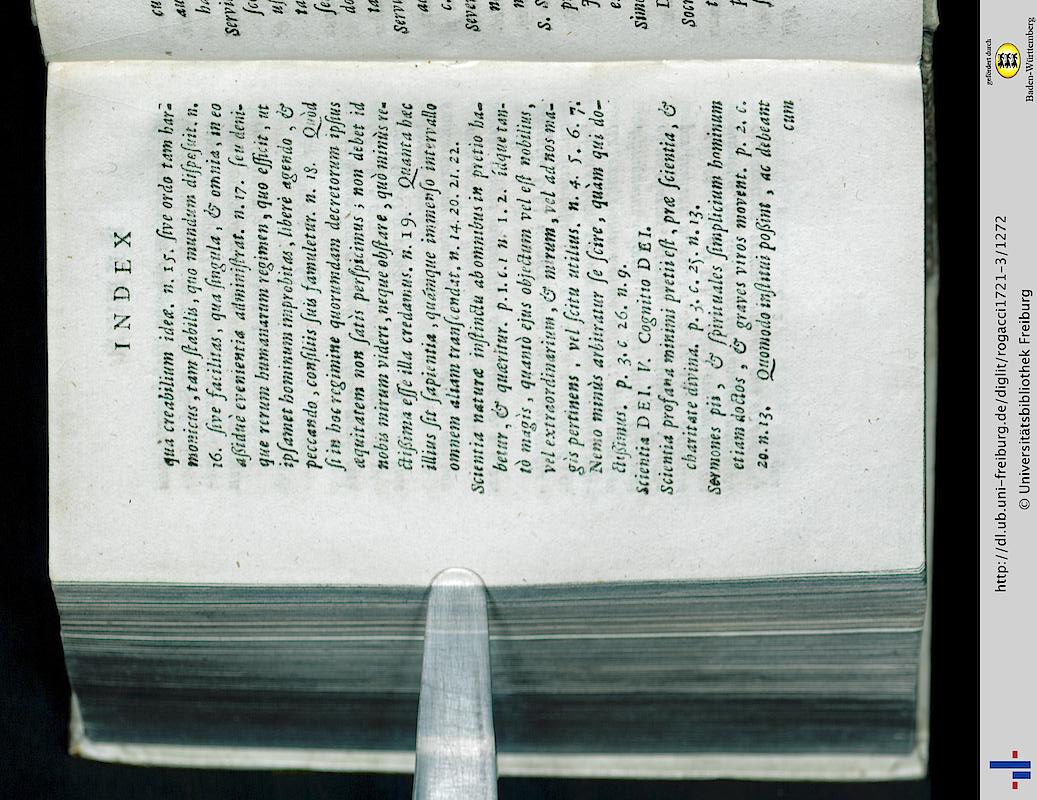 INDEX
quà creabilium ideæ. n. 15. ſive ordo tam har-
monicus, tam ſtabilis, quo mundum diſpeſuit. n.
16. ſive facilitas, qua ſingula, & omnia, in eo
aſsiduè evenientia adminiſtrat. n. 17. ſeu deni-
que rerum humanarum regimen, quo efficit, ut
ipſamet hominum improbitas, liberè agendo, &
peccando, conſiliis ſuis famuletur. n. 18. Quòd
ſi in hoc regimine quorundam decretorum ipſius
æquitatem non ſatis perſpicimus; non debet id
nobis mirum videri, neque obſtare, quò minùs re-
ctiſsima eſſe illa credamus. n. 19. Quanta hæc
illius ſit ſapientia, quámque immenſo intervallo
omnem aliam tranſcendat. n. 14. 20. 21. 22.
Scientia naturæ inſtinctu ab omnibus in pretio ha-
betur, & quæritur. p. 1. c. 1 n. 1. 2. idque tan-
tò magis, quantò ejus objectum vel eſt nobilius,
vel extraordinarium, & mirum, vel ad nos ma-
gis pertinens, vel ſcitu utilius. n. 4. 5. 6. 7.
Nemo minùs arbitratur ſe ſcire, quàm qui do-
ctiſsimus. p. 3. c 26. n. 9.
Scientia DEI. V. Cognitio DEI.
Scientia profana minimi pretii eſt, præ ſcientia, &
charitate divina. p. 3. c. 25. n. 13.
Sermones pii, & ſpirituales ſimplicium hominum
etiam doctos, & graves viros movent. p. 2. c.
20. n. 13. Quomodo inſtitui poſsint, ac debeant
cum
http://dl.ub.uni-freiburg.de/diglit/rogacci1721-3/1272
© Universitätsbibliothek Freiburg
gefördert durch
Baden-Württemberg